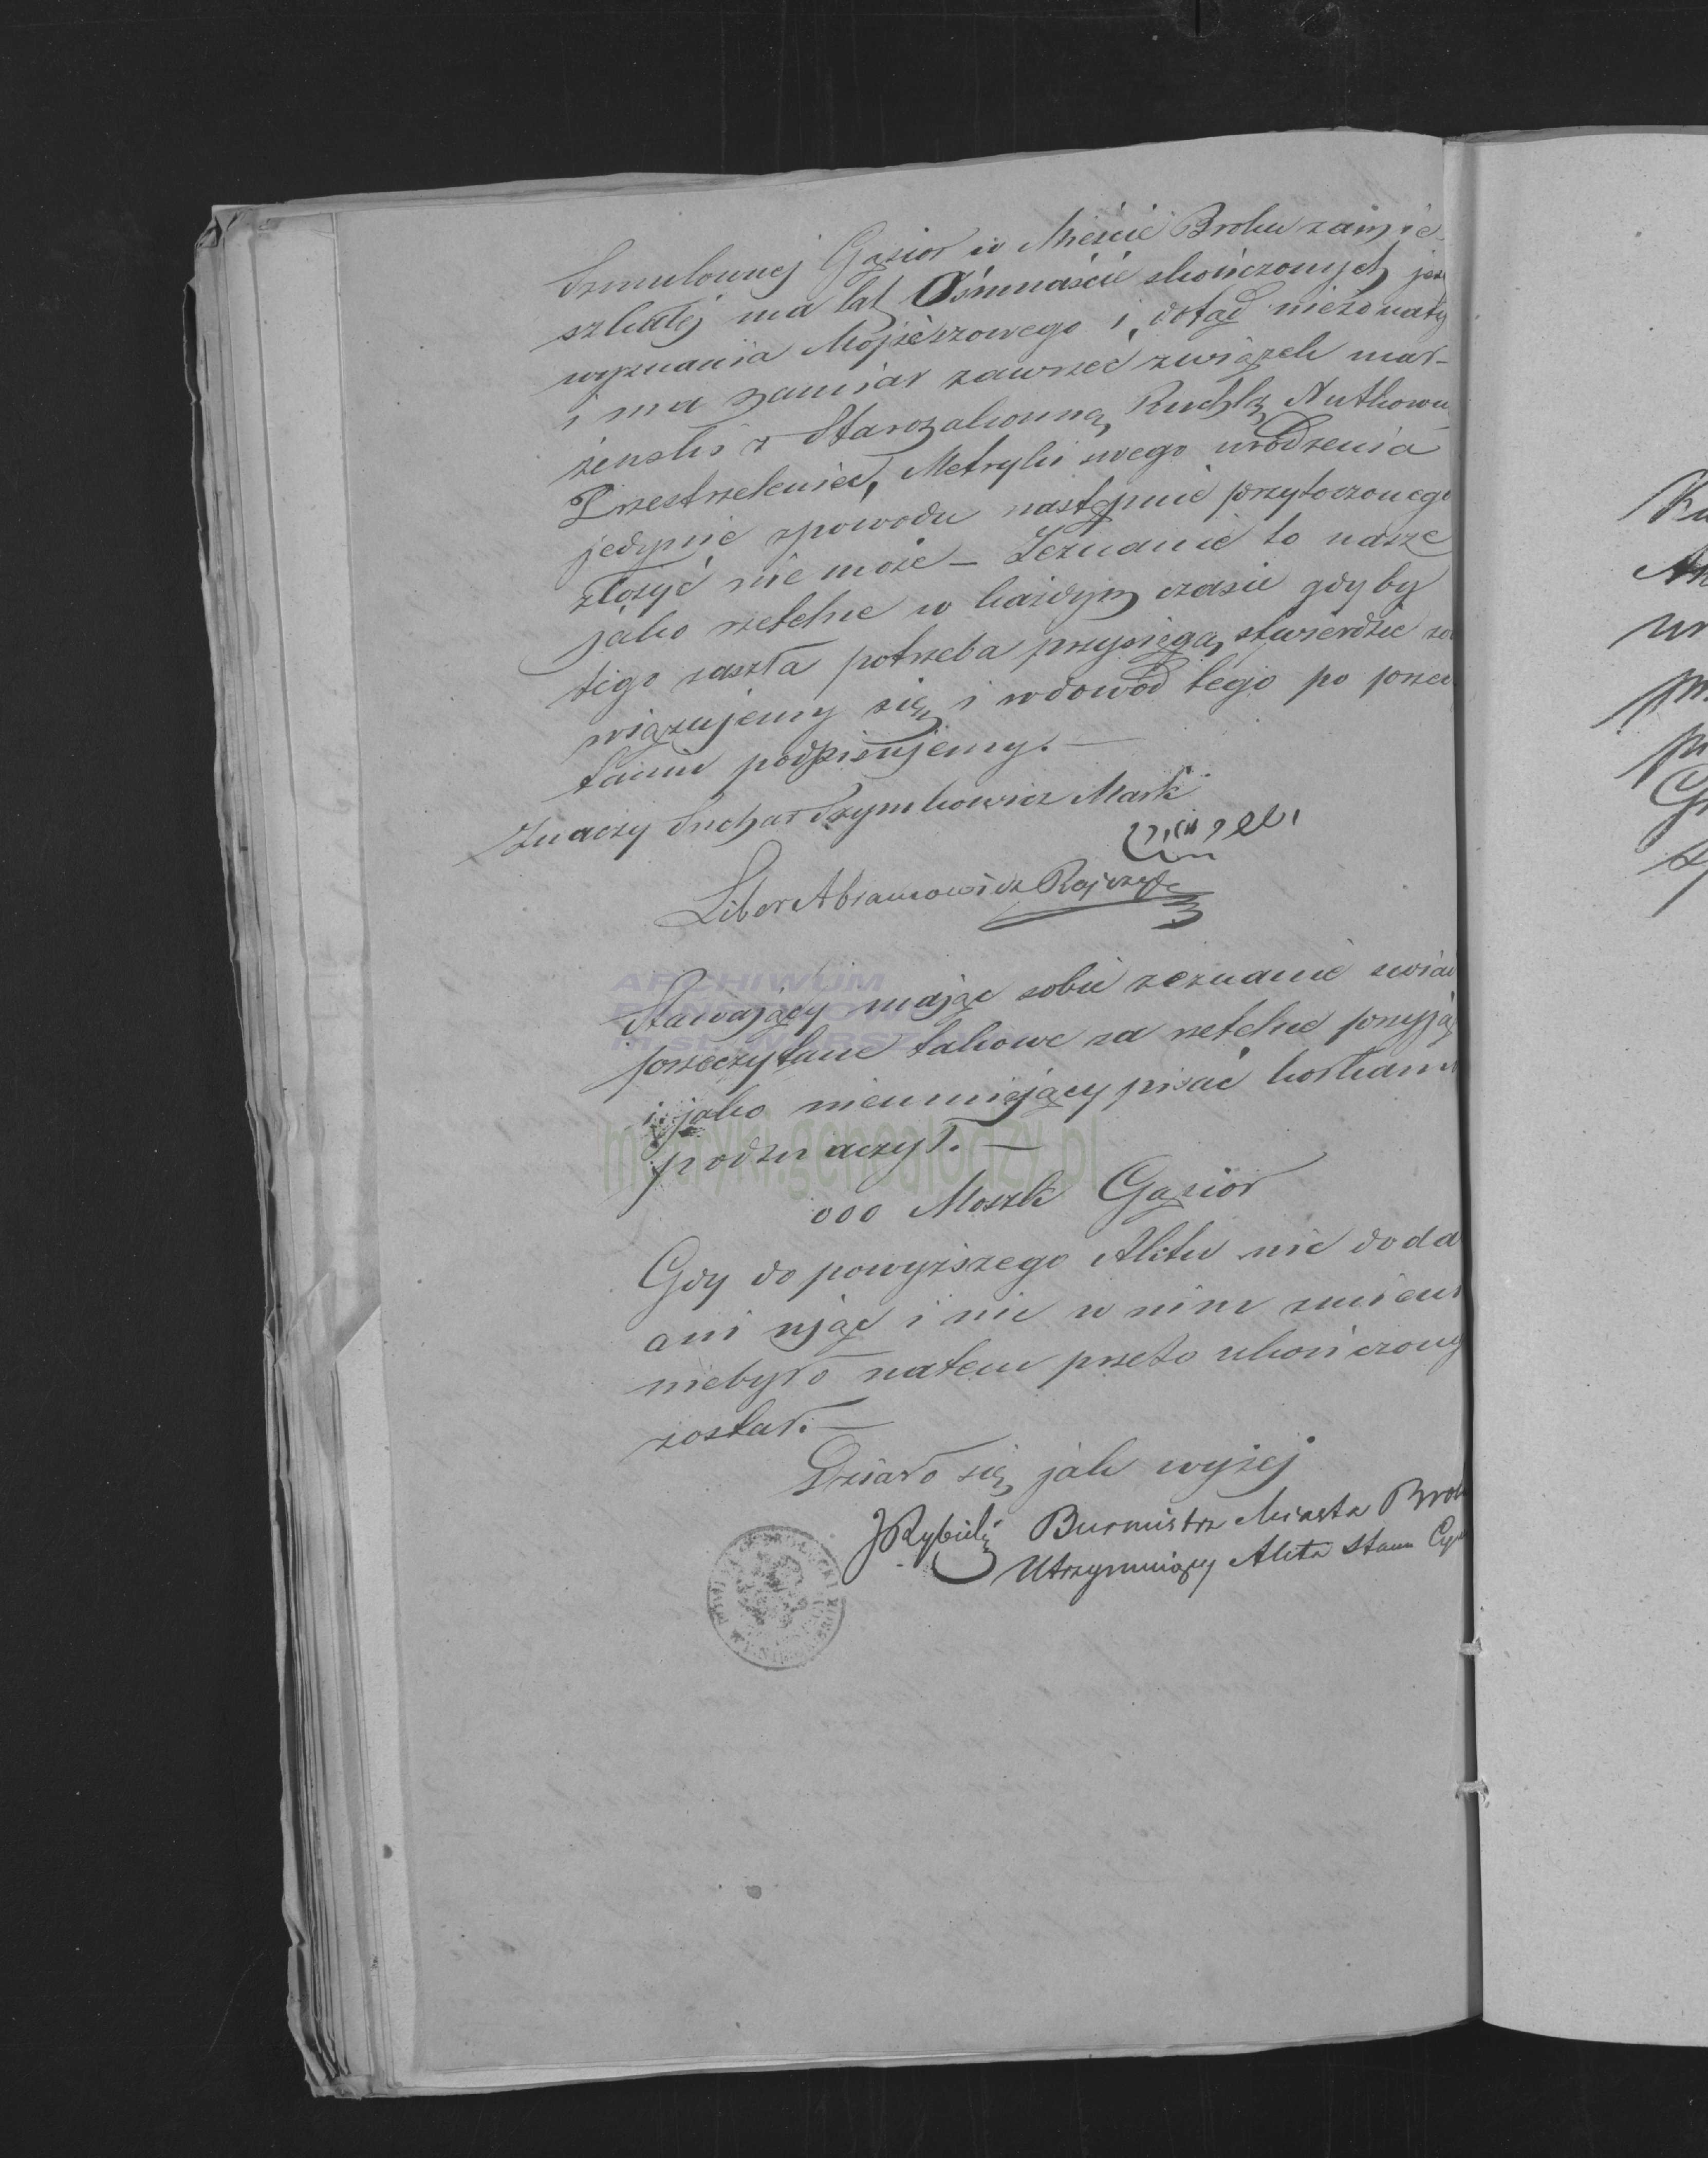 Szmulownej Gąsior w Mieście Broku zamie-
szkałej ma lat Ośmnaście skończonych jes
wyznania Mojżeszowego i dotąd nieżonaty
i ma zamiar zawrzeć związek mał-
żeński z Starozakonną Ruchlą Nutkowu
Przestrzeleniec, Metryki swego urodzenia
jedynie zpowodu następnie przytoczonego
złożyć nie może – Zeznanie to nasze
jako rzetelne w każdym czasie gdyby
tego zaszła potrzeba przysięgą stwierdzić zo
wiązujemy się i wdowód tego po przec
taniu podpisujemy. —
Znaczy Suchar Szymkowicz Mark
Liber Abramowicz
Stawający mając sobie zeznanie świad
przeczytane takowe za rzetelne przyją
i jako nieumiejący pisać kółkami
podznaczył. —
ooo Moszk Gąsior
Gdy do powyższego Aktu nic doda
ani ująć i nic w nim zmieni
niebyło natem przeto ukończony
został. —
Działo się jak wyżej
Burmistrz Miasta Brok
Utrzymujący Akta Stanu Cyw
ARCHIWUM
metryki.genealodzy.pl